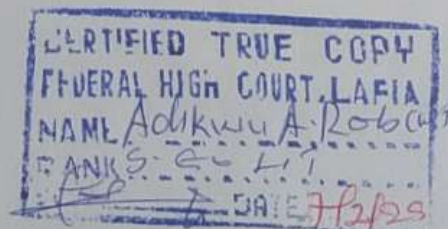 CERTIFIED TRUE COPY
FEDERAL HIGH COURT, LAFIA
NAME Adikwu A. Rob
RANK
DATE 7/2/25